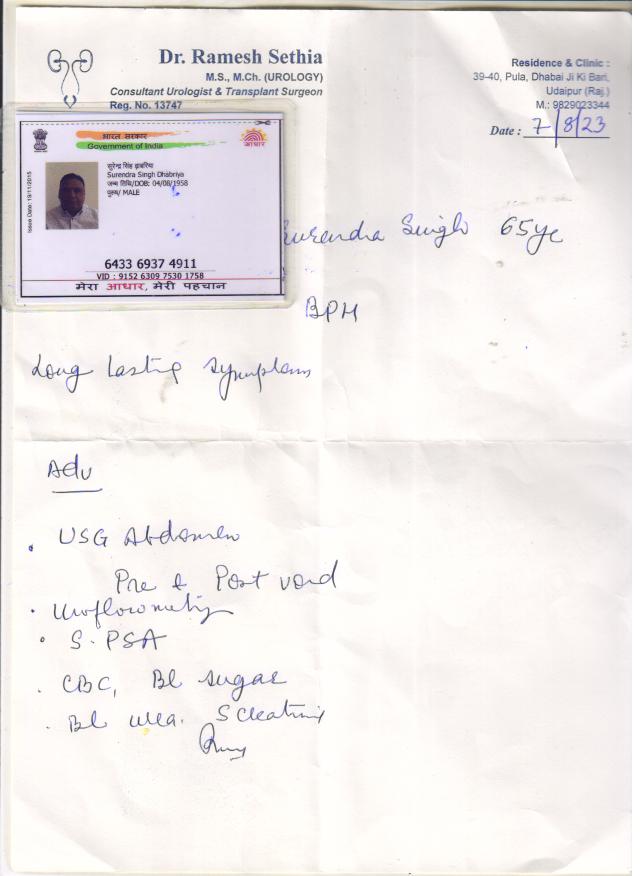 Dr. Ramesh Sethia
M.S., M.Ch. (UROLOGY)
Consultant Urologist & Transplant Surgeon
Reg. No. 13747
Residence & Clinic :
39-40, Pula, Dhabai Ji Ki Bari,
Udaipur (Raj.)
M.: 9829023344
Date : 7/8/23
भारत सरकार
Government of India
आधार
Issue Date: 19/11/2015
सुरेन्द्र सिंह ढाबरिया
Surendra Singh Dhabriya
जन्म तिथि/DOB: 04/08/1958
पुरुष/ MALE
6433 6937 4911
VID : 9152 6309 7530 1758
मेरा आधार, मेरी पहचान
Surendra Singh 65ye
BPH
Long lasting symptoms
Adv
USG Abdomen
Pre & Post void
Uroflowmetry
S. PSA
CBC, Bl sugar
Bl urea. S Creatinine